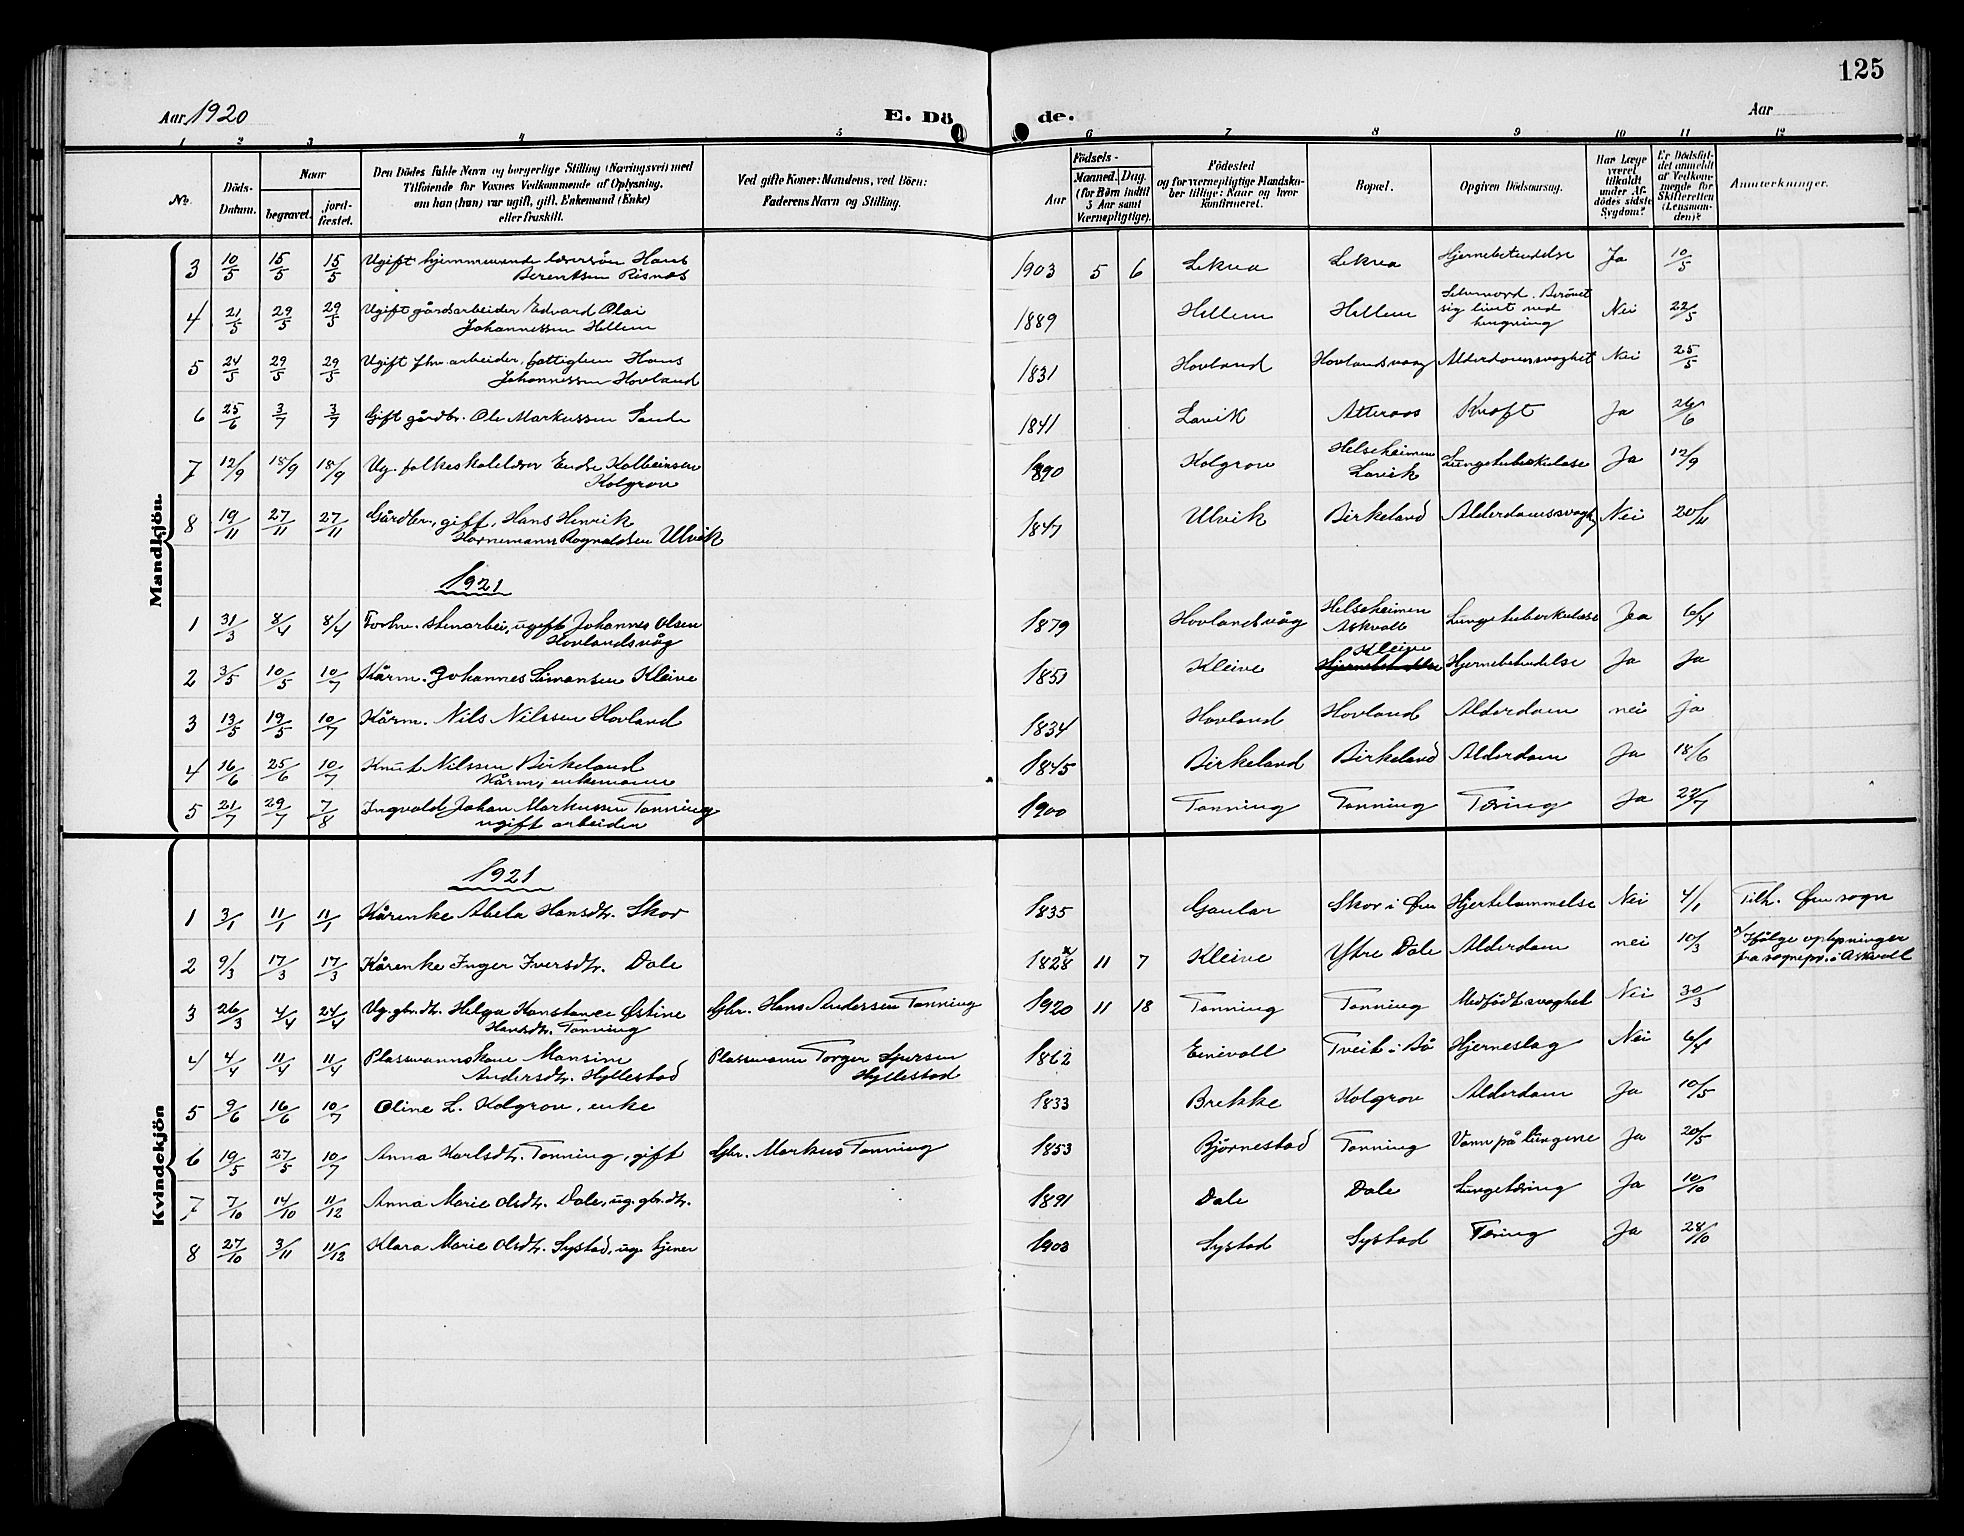 125
Aar 1920
E. Dö de.
Aar
1 2 3 4 5 6 7 8 9 10 11 12
No.
Döds-Datum.
Naar
begravet.
jord-fæstet.
Den Dödes fulde Navn og borgerlige Stilling (Næringsvei) med
Tilföiende for Voxnes Vedkommende af Oplysning,
om han (hun) var ugift, gift, Enkemand (Enke)
eller fraskilt.
Ved gifte Koner: Mandens, ved Börn:
Faderens Navn og Stilling.
Födsels-
Aar
Maaned. Dag.
(for Börn indtil
5 Aar samt
Værnepligtige).
Födested
og for værnepligtige Mandska-
ber tillige: Naar og hvor
konfirmeret.
Bopæl.
Opgiven Dödsaarsag.
Har Læge
været
tilkaldt
under Af-
dödes sidste
Sygdom?
Er Dödsfal-
det anmeldt
af Vedkom-
mende for
Skifteretten
(Lensman-
den)?
Anmærkninger.
Mandkjön.
3 10/5 15/5 15/5 Ugift hjemmeværende lærersön Hans 1903 5 6 Lekva Lekva Hjernebetendelse Ja 10/5
Berentsen Risnes
4 21/5 29/5 29/5 Ugift gårdsarbeider Edvard Olai 1889 Hellem Hellem Selvmord. Berövet Nei 22/5
Johannessen Hellem sig livet ved
hengning
5 24/5 29/5 29/5 Ugift fhv. arbeider, fattiglem Hans 1831 Hovland Hovlandsvaag Alderdomssvaghet Nei 25/5
Johannessen Hovland
6 25/6 3/7 3/7 Gift gårdbr. Ole Markussen Sande 1841 Lavik Atteraas Kræft Ja 26/6
7 12/9 18/9 18/9 Ug. folkeskolelærer Endre Kolbeinsen 1890 Kolgrov Helseheimen Lungetuberkulose Ja 12/9
Kolgrov Lavik
8 19/11 27/11 27/11 Gårdbr., gift, Hans Henrik 1847 Ulvik Birkeland Alderdomssvagh. Nei 20/11
Hornemann Rognaldsen Ulvik
1921
1 31/3 8/4 8/4 Forhv. stenarbei., ugift Johannes Olsen 1879 Hovlandsvåg Helseheimen Lungetuberkulose Jea 6/4
Hovlandsvåg Askvoll
2 3/5 10/5 10/7 Kårm. Johannes Simonsen Kleive 1851 Kleive Kleive Hjernebetendelse Ja Ja
3 13/5 19/5 10/7 Kårm. Nils Nilssen Hovland 1834 Hovland Hovland Alderdom nei ja
4 16/6 25/6 10/7 Knut Nilssen Birkeland 1845 Birkeland Birkeland Alderdom Ja 18/6
Kårm., enkemann
5 21/7 29/7 7/8 Ingvald Johan Markussen Tonning 1900 Tonning Tonning Tæring Ja 22/7
ugift arbeider
Kvindekjön
1921
1 3/1 11/1 11/1 Kårenke Abela Hansdtr. Skor 1835 Gaular Skor i Øen Hjertelammelse Nei 4/1 Tilh. Øen sogn
2 9/3 17/3 17/3 Kårenke Inger Iversdtr. Dale 1828 x 11 7 Kleive Ytre Dale Alderdom nei 10/3 x/ Ifölge oplysninger
fra sognepr. i Askvoll
3 26/3 4/4 24/4 Ug. gbr.dtr. Helga Konstance Østine Gbr. Hans Andersen Tonning 1920 11 18 Tonning Tonning Medfödt svaghet Nei 30/3
Hansdtr. Tonning
4 4/4 11/4 11/4 Plassmannskone Mansine Plassmann Torger Ipersen 1862 Einevoll Tveit i Bö Hjerneslag Nei 6/4
Andersdtr. Hyllestad Hyllestad
5 9/6 16/6 10/7 Oline L. Kolgrov, enke 1833 Brekke Kolgrov Alderdom Ja 10/5
6 19/5 27/5 10/7 Anna Karlsdtr. Tonning, gift Gbr. Markus Tonning 1853 Björnestad Tonning Vann på lungene Ja 20/5
7 7/10 14/10 11/12 Anna Marie Olsdtr. Dale, ug. gbr.dtr. 1891 Dale Dale Lungetæring Ja 10/10
8 27/10 3/11 11/12 Klara Marie Olsdtr. Systad, ug. tjener 1903 Systad Systad Tæring Ja 28/10